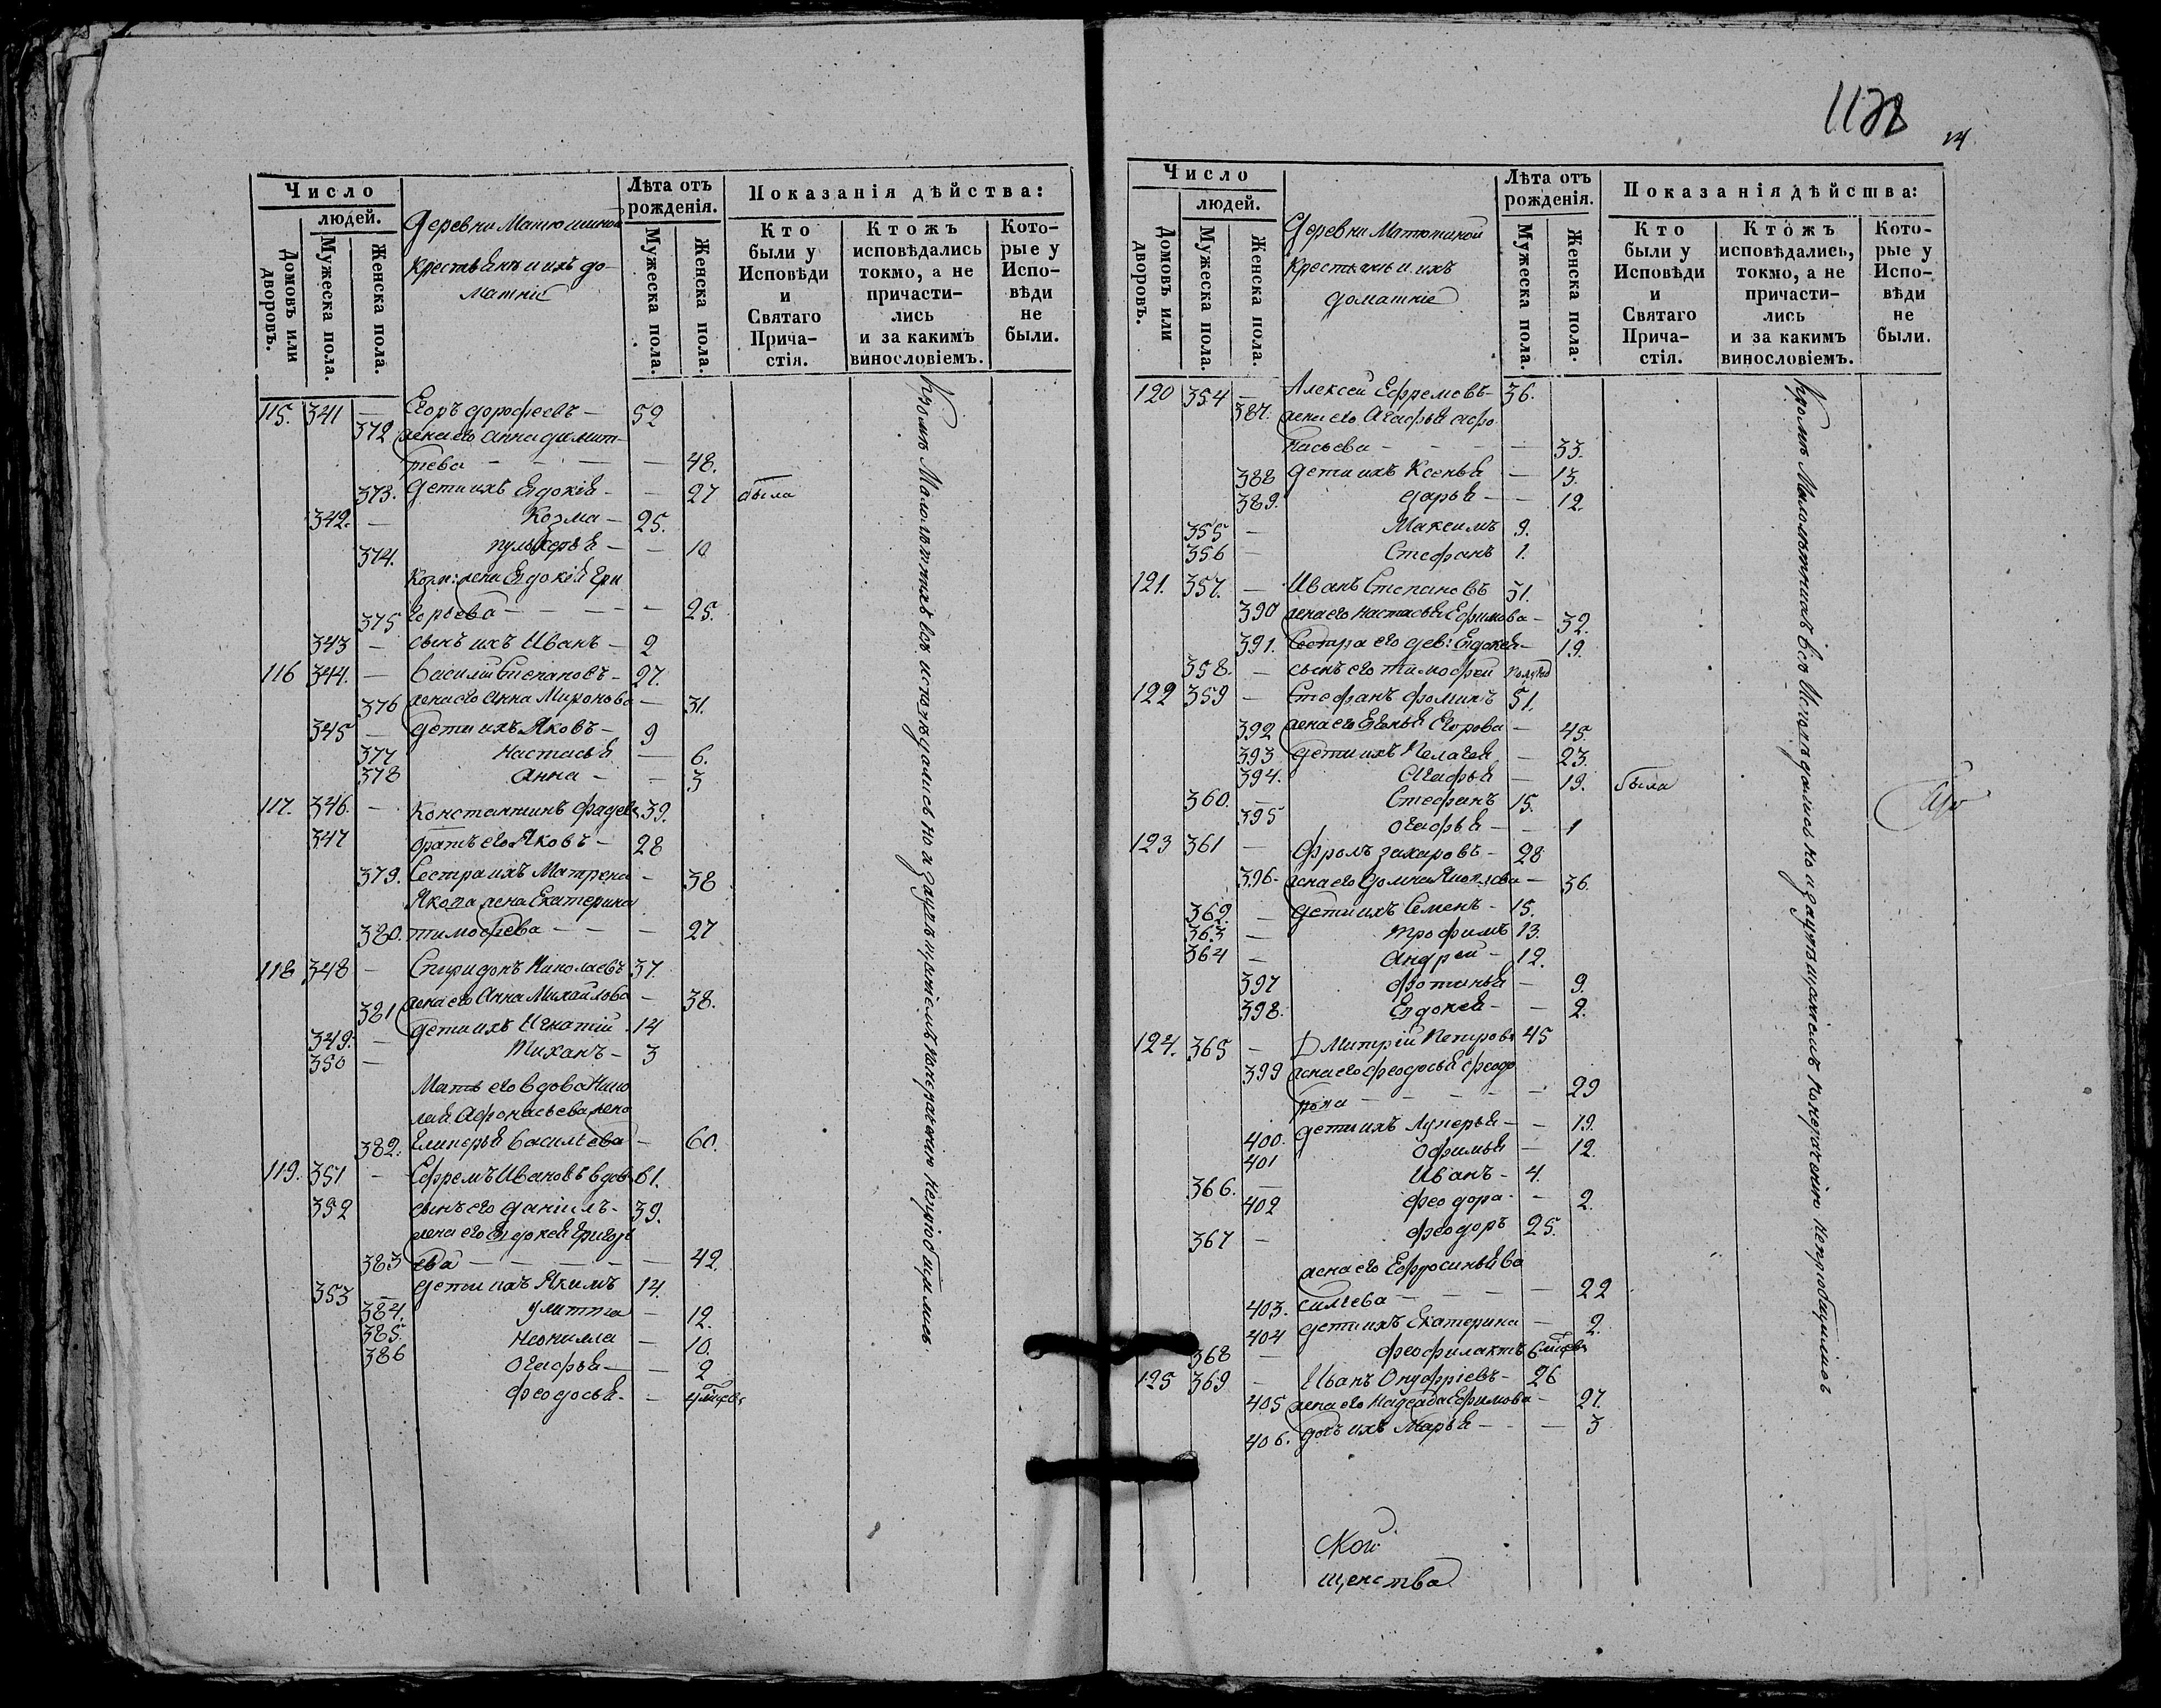 Число
людей.
Домовъ или дворовъ.
Мужеска пола.
Женска пола.
Деревни Матюшиной
крестьянѣ и ихъ до-
машніе
Лѣта отъ рожденія.
Мужеска пола.
Женска пола.
Показанія дѣйства:
Кто были у Исповѣди и Святаго Прича- стія.
Ктожъ исповѣдались токмо, а не причасти- лись и за какимъ винословіемъ.
Кото- рые у Испо- вѣди не были.
115. 341 — Егоръ дорофеевъ — 52
372 жена его анна димит-
рева — — — — 48.
373. дети ихъ Евдокія — — 27 была
342. — Козма — 25.
374. пульхерья — — 10
Козм: жена Евдокія Гри
375 горьева — — — — 25.
343 — сынъ ихъ Иванъ — 2
116 344. — Василій Степановъ — 27.
376 жена его Анна Миронова — 31.
345 — дети ихъ Яковъ — 9
377 Настасья — 6.
378 Анна — — 3
117. 346. — Константинъ фадеевъ 39.
347 братъ его Яковъ — 28
379. Сестра ихъ Матрена — 38
Якова жена Екатерина
380. тимофеева — — — 27
118 348 — Спиридонъ Николаевъ 37.
381 жена его Анна Михайлова — 38.
349. — дети ихъ Игнатій 14
350 — Тиханъ — 3
Мать его вдова Нико
лая Афонасьева жена
382. Еликерья Васильева — 60.
119. 351 — Ефремъ Ивановъ вдов 61.
352 сынъ его даніилъ — 39.
жена его Евдокея Григорь
383 ева — — — — — 42
353 — дети ихъ Якимъ 14.
384. Улитта — 12.
385. Неонилла — 10.
386 Огафья — — 2
феодосья — — 4 месц
Кромѣ Малолѣтнихъ всѣ исповѣдались но а за упущеніемъ и нераченію непріобщились
1138
14
Число
людей.
Домовъ или дворовъ.
Мужеска пола.
Женска пола.
Деревни Матюшиной
Крестьянѣ и ихъ
домашніе
Лѣта отъ рожденія.
Мужеска пола.
Женска пола.
Показанія дѣйства:
Кто были у Исповѣди и Святаго Прича- стія.
Ктожъ исповѣдались, токмо, а не причасти- лись и за какимъ винословіемъ.
Кото- рые у Испо- вѣди не были.
120 354 — Алексей Ефремовъ — 36.
387. жена его Агафья афо
насьева — — — — 33.
388 дети ихъ Ксенья — 13.
389. дарья — — 12.
355 — Максимъ 9.
356 — Стефанъ 1.
121. 357. — Иванъ Степановъ 31.
390 жена его Настасья Ефимова — 32.
391. Сестра его дев: Евдокея — 19.
358. — сынъ его тимофей полугод
122 359 — Стефанъ фоминъ 51.
392 жена его Евгенья Егорова — 45.
393 дети ихъ Пелагея — 23.
394. Агафья — 19. была
360. — Стефанъ 15.
395 Огафья — — 1
123 361 — фролъ захаровъ — 28
396. жена его Домна Яковлева — 36.
362. — дети ихъ Семенъ — 15.
363 — трофимъ 13.
364 — Андрей — 12.
397 фотинья — 9.
398. Евдокея — — 2.
124. 365 — Дмитрій Петровъ 45
399 жена его феодосья феодо
рова — — — — — 29
400. дети ихъ Лукерья — — 19.
401 Офимья — 12.
366. — Иванъ — 4.
402 феодора — — 2.
367 — феодоръ 25.
жена его Ефросинья Ва
403. сильева — — — — 22
404 дети ихъ Екатерина — 2.
368 — феофилактъ 6 месц
125 369 — Иванъ Онуфріевъ — 26
405 жена его Надежда Ефимова — 27.
406. дочь ихъ Марья — — — 3
Кромѣ Малолѣтнихъ всѣ Исповѣдались но а за упущеніемъ и нераченію непріобщились
ской
щенства